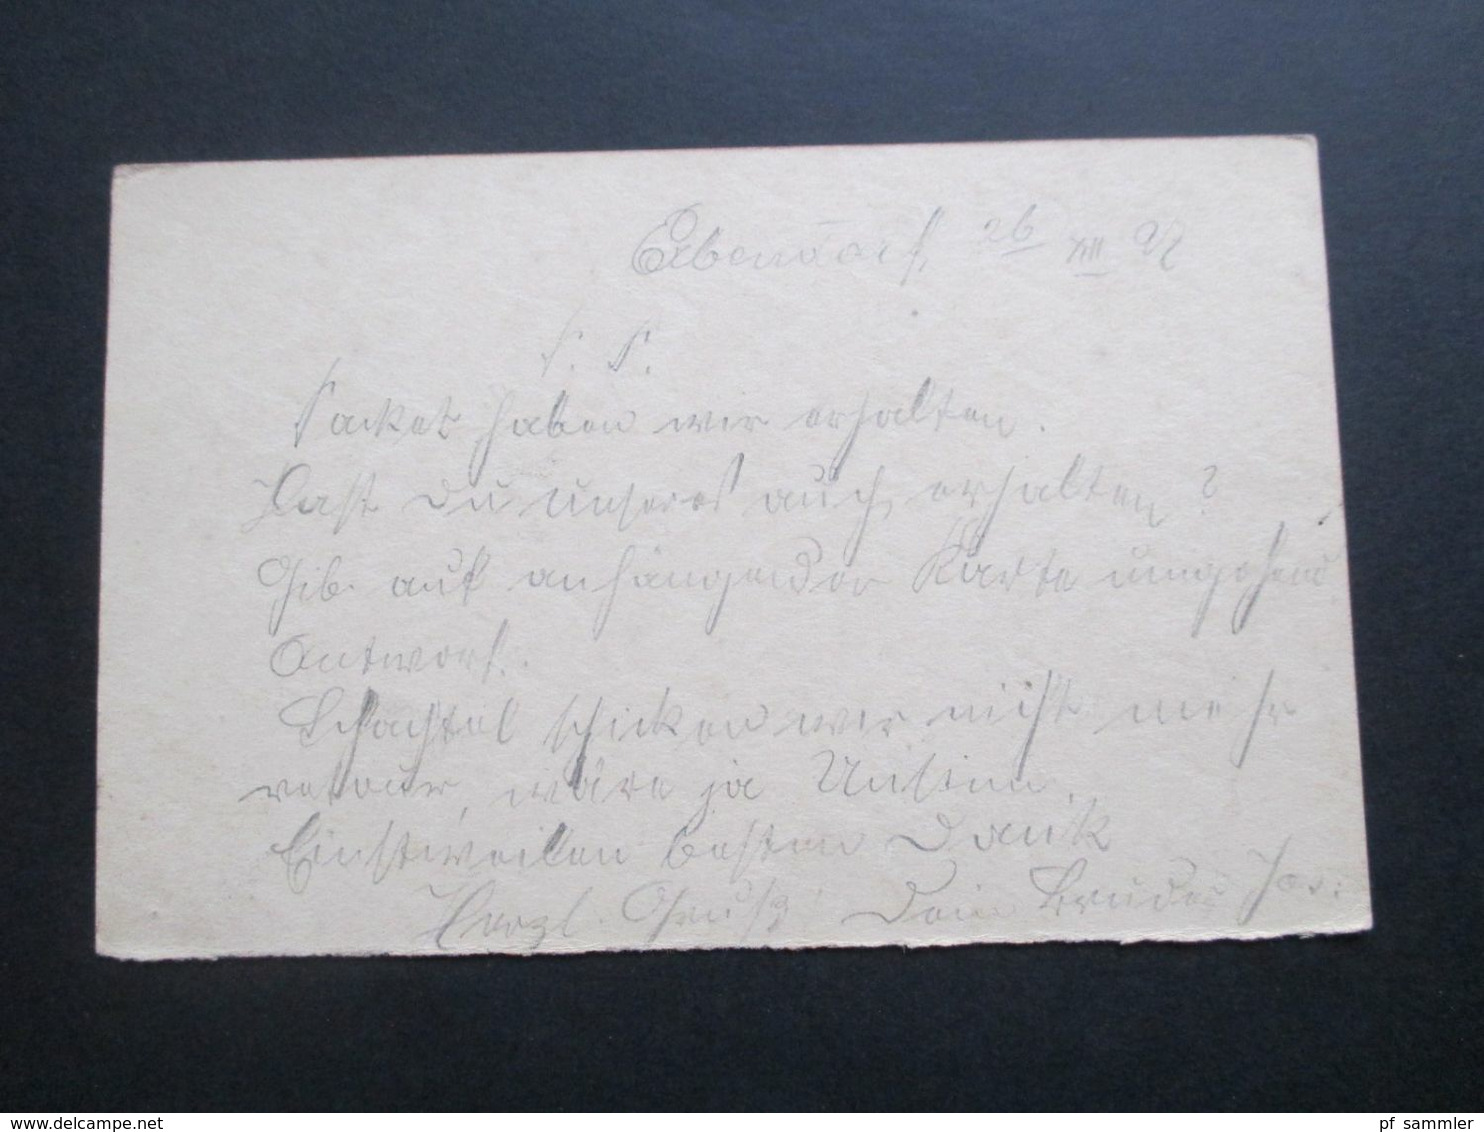 Erbendorf, 26/XII 97
P. P.
Packet haben wir erhalten.
Hast du unseres auch erhalten?
Gib auf anhängender Karte umgehend
Antwort.
Schachtel schicken wir nicht mehr
retour, wäre ja Unsinn.
Einstweilen besten Dank
Herzl. Gruß! Dein Bruder Jos:
delcampe.net
pf_sammler